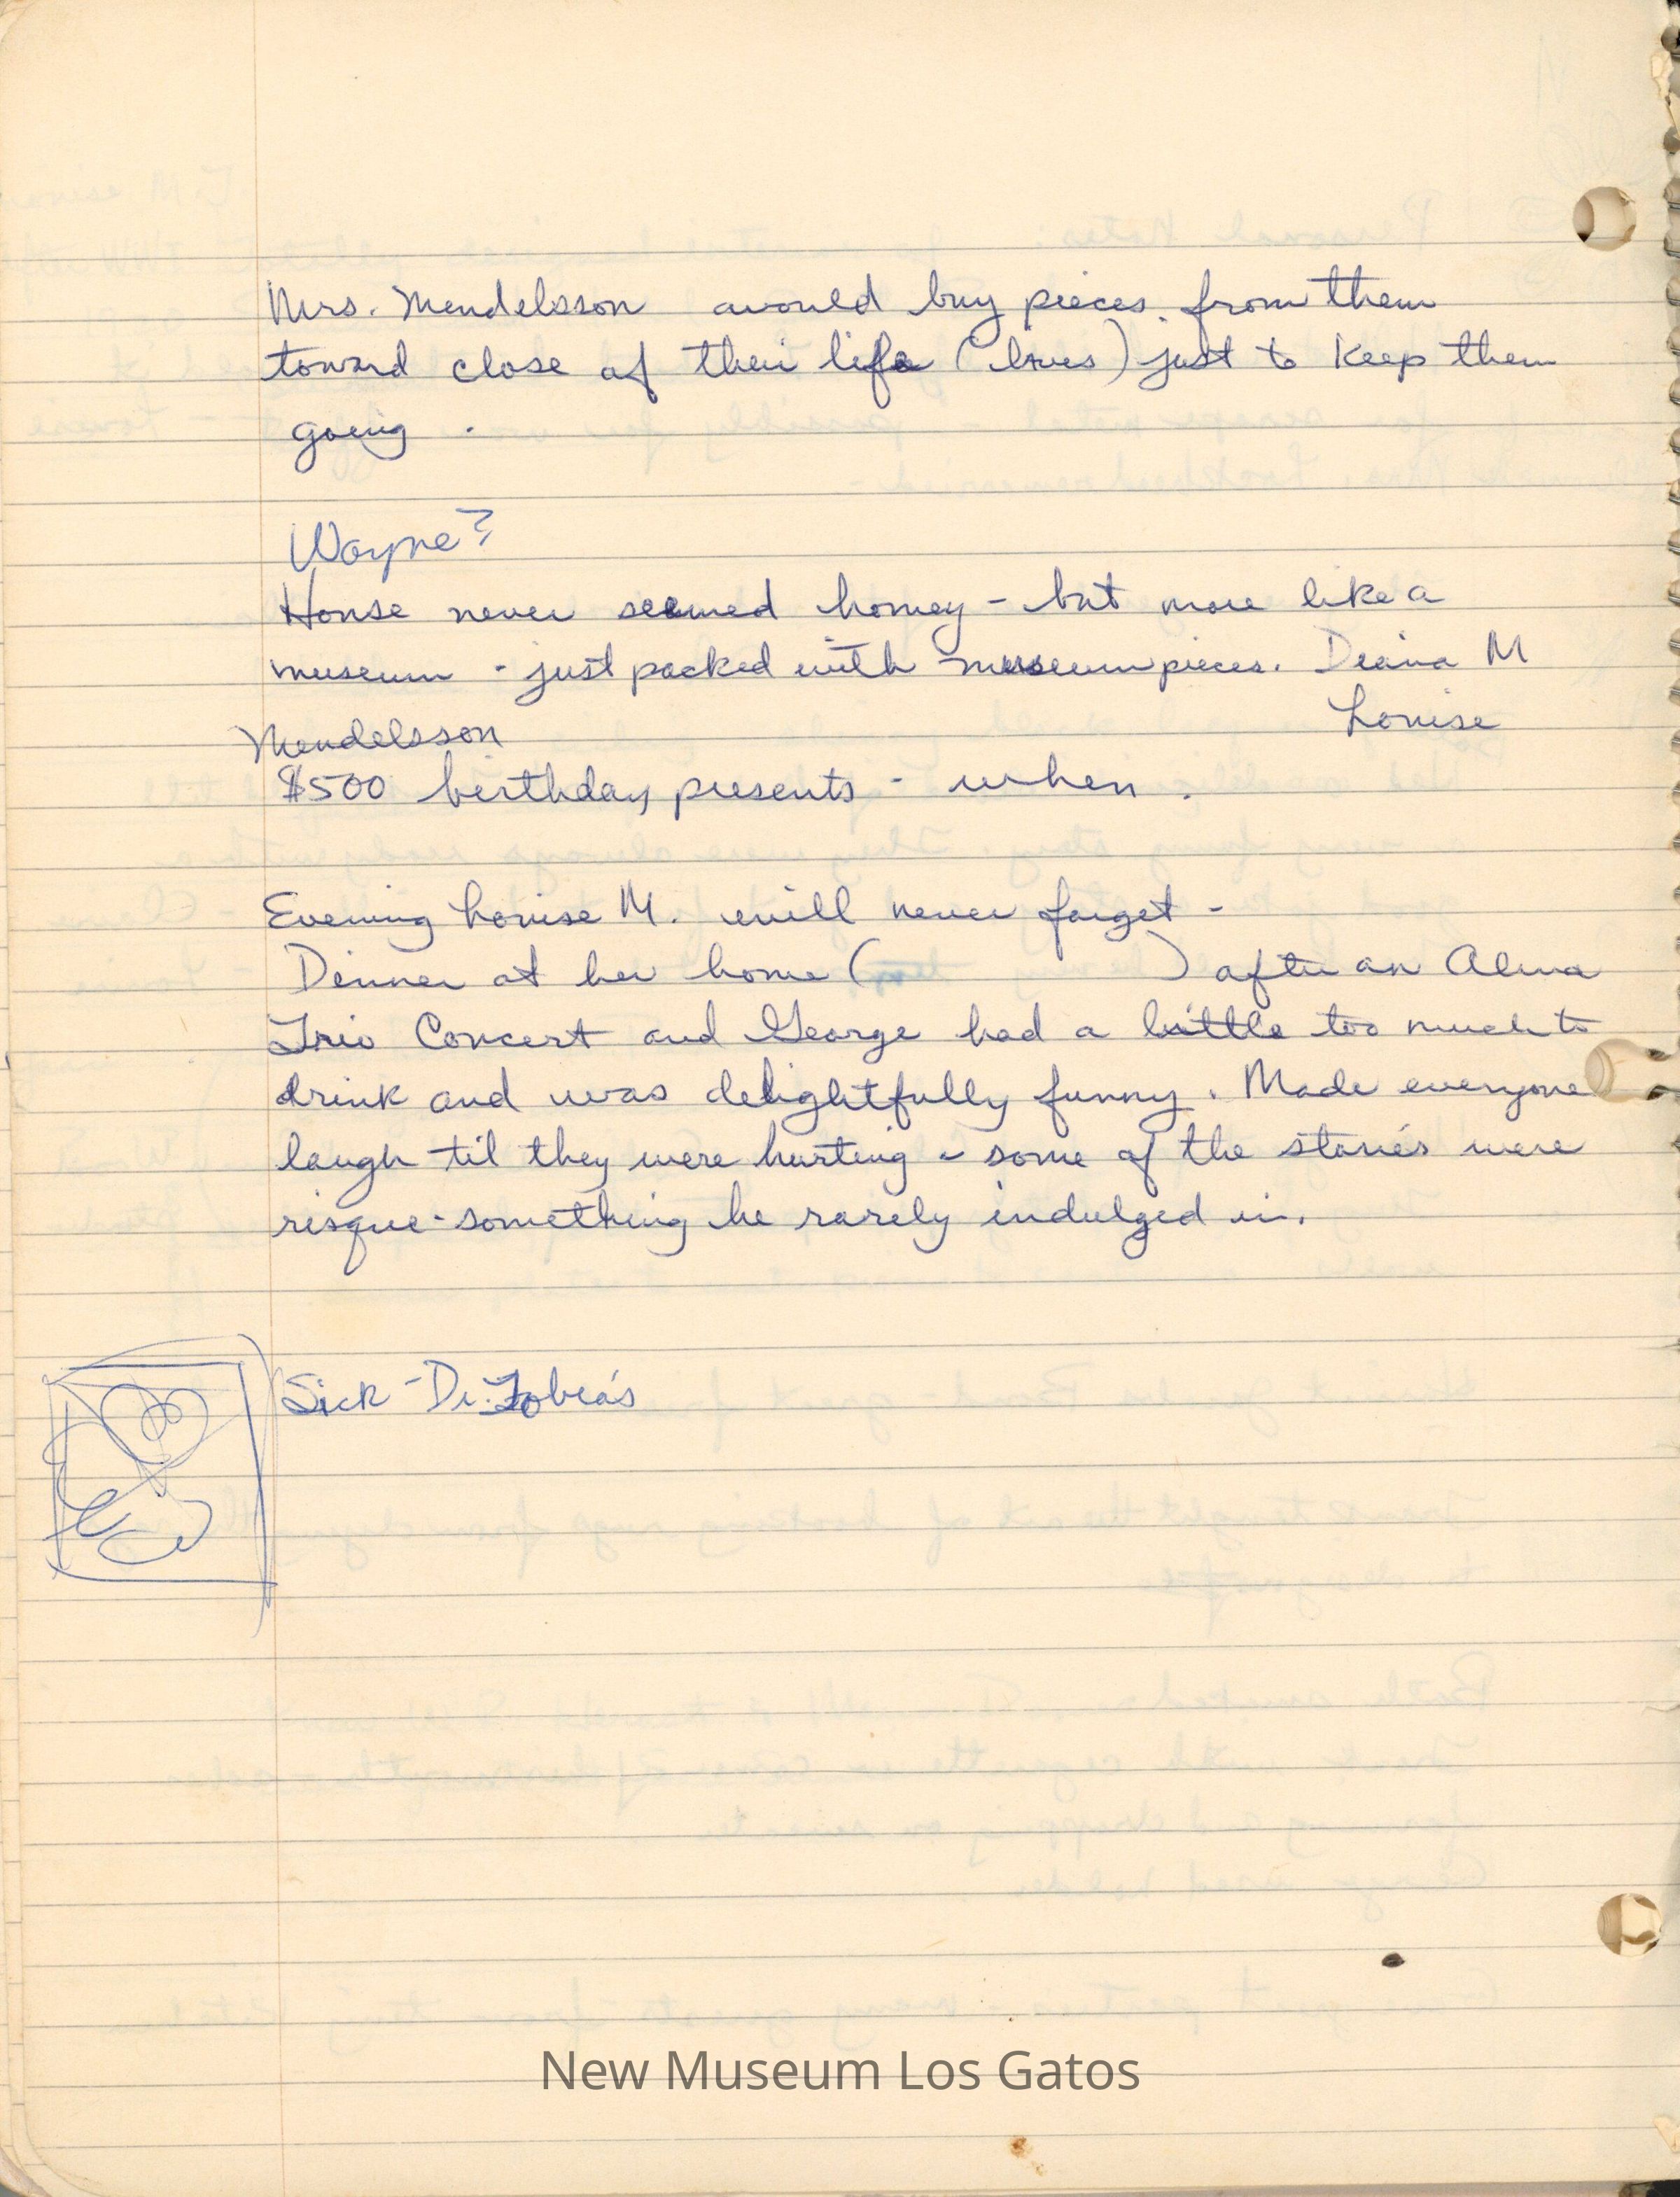 Mrs. Mendelsson would buy pieces from them
toward close of their life (lives) just to keep them
going .
Wayne?
House never seemed homey - but more like a
museum - just packed with museum pieces. Diana M
Louise
Mendelsson
$500 birthday presents - when .
Evening Louise M. will never forget -
Dinner at her home ( ) after an Alma
Trio Concert and George had a little too much to
drink and was delightfully funny. Made everyone
laugh til they were hurting - some of the stories were
risque - something he rarely indulged in.
Sick - Dr. Tobias
New Museum Los Gatos